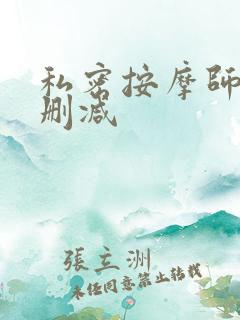 私密按摩师
删减
張立洲
未经同意禁止转载